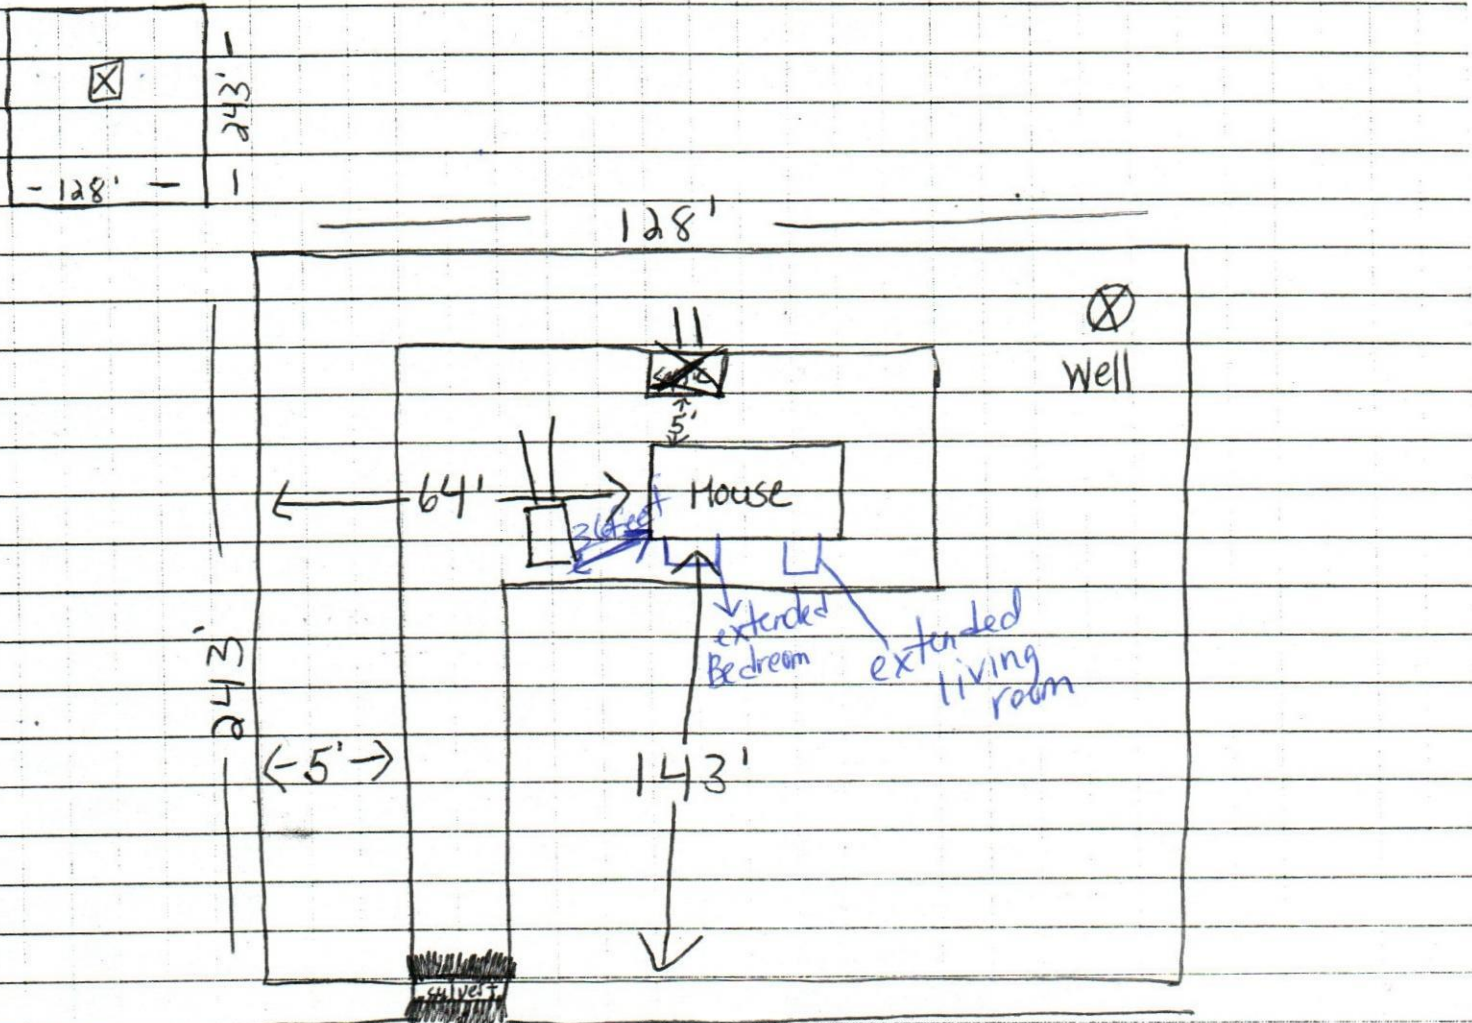 - 243' -
- 128' -
128'
Well
5'
64'
House
extended
Bedroom
extended
living
room
243'
5'
143'
culvert